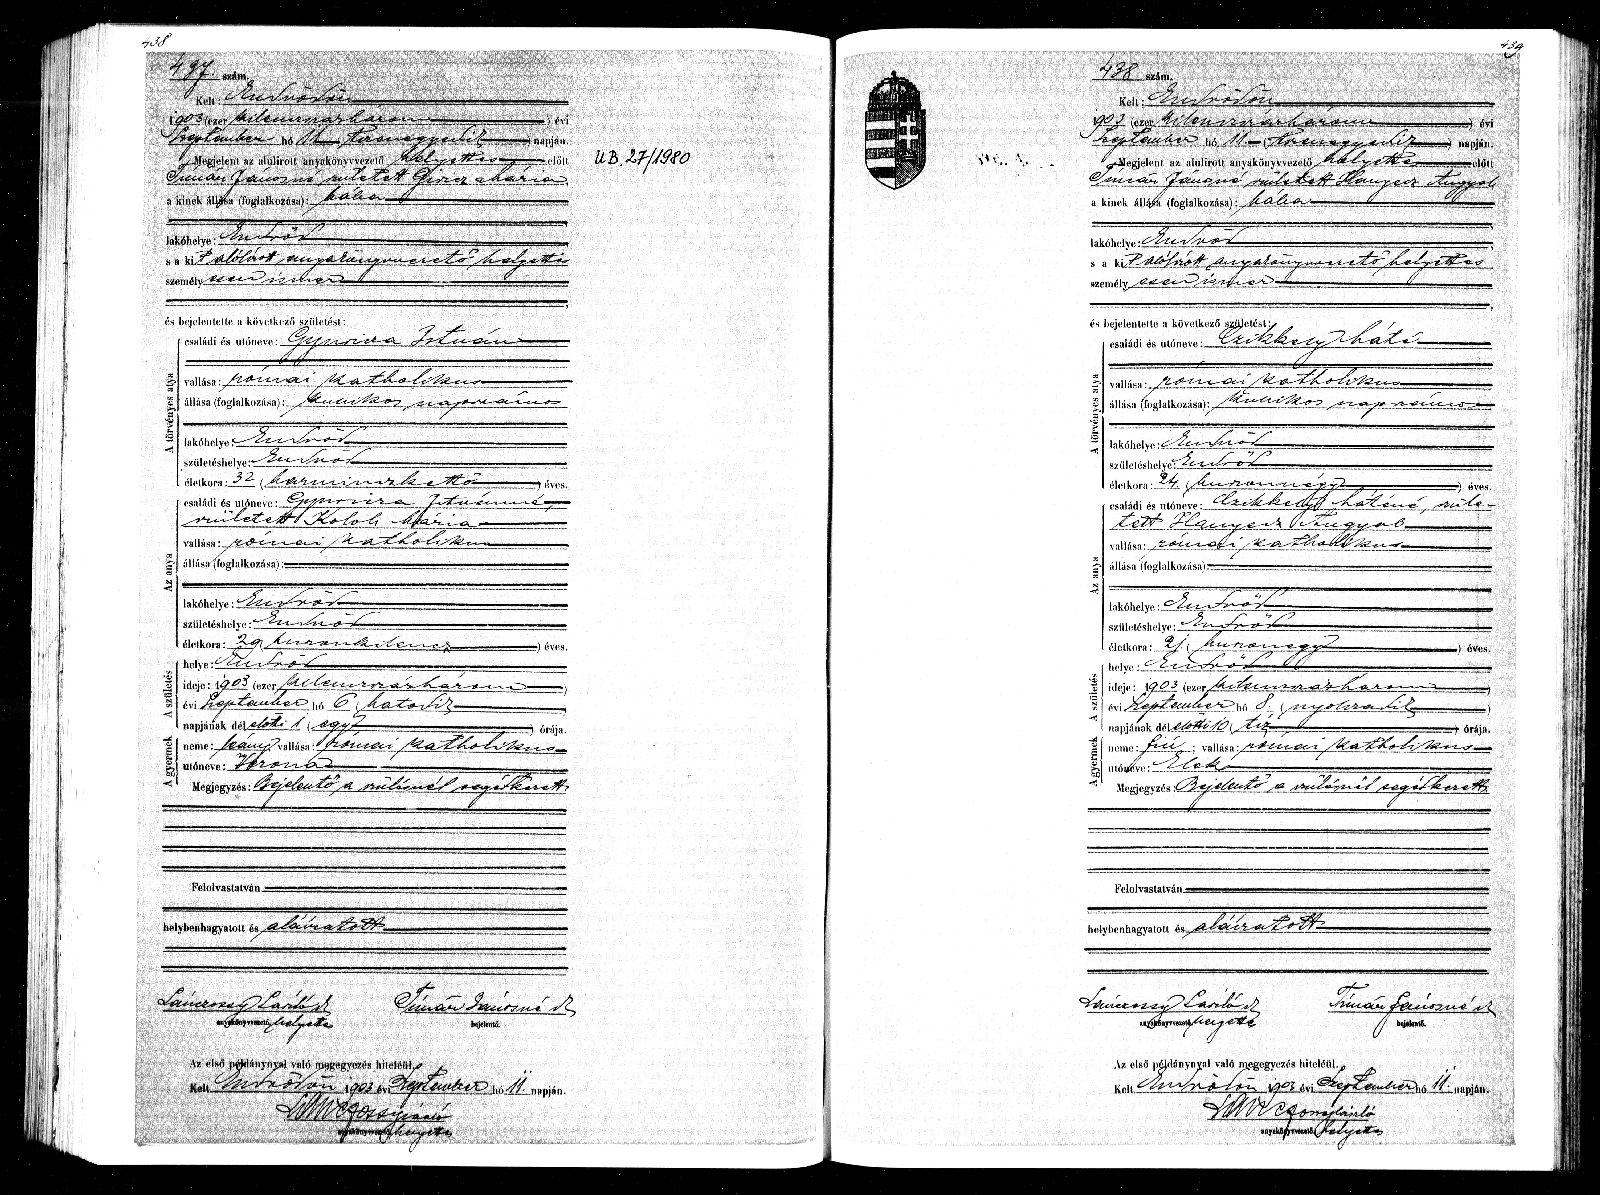 438
497. szám.
Kelt: Endrődön
1903 (ezer kilenczszázhárom) évi
Szeptember hó 11 (tizenegyedik) napján.
Megjelent az alulirott anyakönyvvezető helyettes előtt
Timár Jánosné született Giricz Mária
a kinek állása (foglalkozása): bába
lakóhelye: Endrőd
s a kit alólirott anyakönyvvezető helyettes
személyesen ismer
és bejelentette a következő születést:
A törvényes atya
családi és utóneve: Gyuricza István
vallása: római katholikus
állása (foglalkozása): kubikos napszámos
lakóhelye: Endrőd
születéshelye: Endrőd
életkora: 32 (harminczkettő) éves.
Az anya
családi és utóneve: Gyuricza Istvánné,
született Kololi Mária
vallása: római katholikus
állása (foglalkozása):
lakóhelye: Endrőd
születéshelye: Endrőd
életkora: 29 huszonkilencz) éves.
A születés
helye: Endrőd
ideje: 1903 (ezer kilenczszázhárom)
évi Szeptember hó 6 (hatodik
napjának dél előtti 1 (egy) órája.
A gyermek
neme: leány; vallása: római katholikus
utóneve: Verona
Megjegyzés: Bejelentő a szülésnél segédkezett
Felolvastatván
helybenhagyatott és aláiratott
Lánczossy László Timár Jánosné
anyakönyvvezető helyettes bejelentő.
Az első példánynyal való megegyezés hiteléül.
Kelt Endrődön 1903 évi Szeptember hó 11 napján.
Lánczossy László
anyakönyvvezető helyettes
UB. 27/1980
439
438 szám.
Kelt: Endrődön
1903 (ezer kilenczszázhárom) évi
Szeptember hó 11 (tizenegyedik) napján.
Megjelent az alulirott anyakönyvvezető helyettes előtt
Timár Jánosné született Hanyecz Angyal
a kinek állása (foglalkozása): bába
lakóhelye: Endrőd
s a kit alólirott anyakönyvvezető helyettes
személyesen ismer
és bejelentette a következő születést:
A törvényes atya
családi és utóneve: Czikkely Máté
vallása: római katholikus
állása (foglalkozása): kubikos napszámos
lakóhelye: Endrőd
születéshelye: Endrőd
életkora: 24 (huszonnégy) éves.
Az anya
családi és utóneve: Czikkely Máténé, szüle-
tett Hanyecz Angyal
vallása: római katholikus
állása (foglalkozása):
lakóhelye: Endrőd
születéshelye: Endrőd
életkora: (huszonegy) éves.
A születés
helye: Endrőd
ideje: 1903 (ezer kilenczszázhárom)
évi Szeptember hó 8. (nyolczadik
napjának dél előtti 10 (tíz) órája.
A gyermek
neme: fiú; vallása: római katholikus
utóneve: Elek
Megjegyzés: Bejelentő a szülésnél segédkezett
Felolvastatván
helybenhagyatott és aláiratott
Lánczossy László Timár Jánosné
anyakönyvvezető helyettes bejelentő.
Az első példánynyal való megegyezés hiteléül.
Kelt Endrődön 1903 évi Szeptember hó 11 napján.
Lánczossy László
anyakönyvvezető helyettes